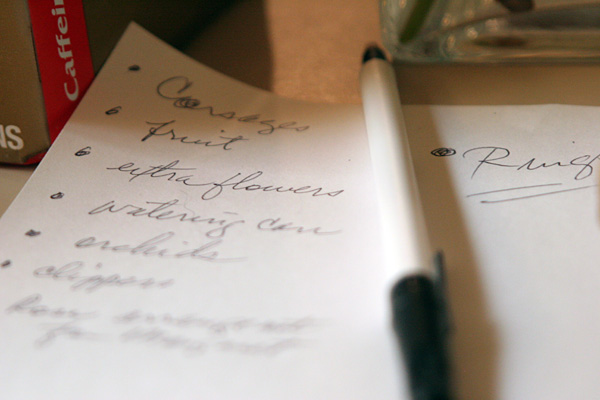 Caffein
us
Corsages
fruit
extra flowers
watering can
orchids
clippers
Ring